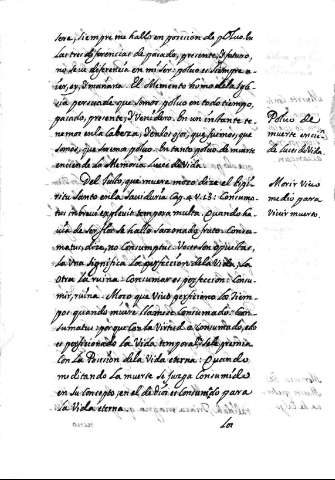 tene, siempre me hallo en posicion de polvo. En
las tres diferencias de pasado, presente, y futuro,
no se ve diferencia en mi ser: polvo es siempre a-
ier, oy, y mañana. El Memento homo de la Igle-
sia persuade que somos polvo en todo tiempo,
pasado, presente, y Venidero. En un instante te-
nemos en la Cabeza, y en los ojos, que fuimos, que
somos, que seremos polvo. En tanto polvo de muerte
enciende la Memoria luces de Vida.
Polvo de
muerte encien
de luces de Vida
Del Justo, que muere mozo dize el Spiri-
tu Santo en la Sauiduria Cap. 4. V. 13: Consuma-
tus in brevi explevit tempora multa. Quando ha-
uia de ser flor se halló sazonado fruto. Consu-
matus, dize, no Consumptus. Voces son opuestas,
la Una significa la perfeccion de la Vida, y la
otra la ruina: Consumar es perfeccion: Consu-
mir, ruina. Mozo que Vivió perfeccionó los tiem-
pos quando muere llamese Consumado: Con-
sumatus: porque con la Virtud a Consumado, esto
es perfeccionado la Vida temporal, y se le premia
con la Posicion de la Vida eterna: Quando
meditando la muerte se juzga Consumida
en su Concepto, en el de Dios es Consumado para
la Vida eterna.
Morir Vivo
medio para
Vivir muerto.
Los